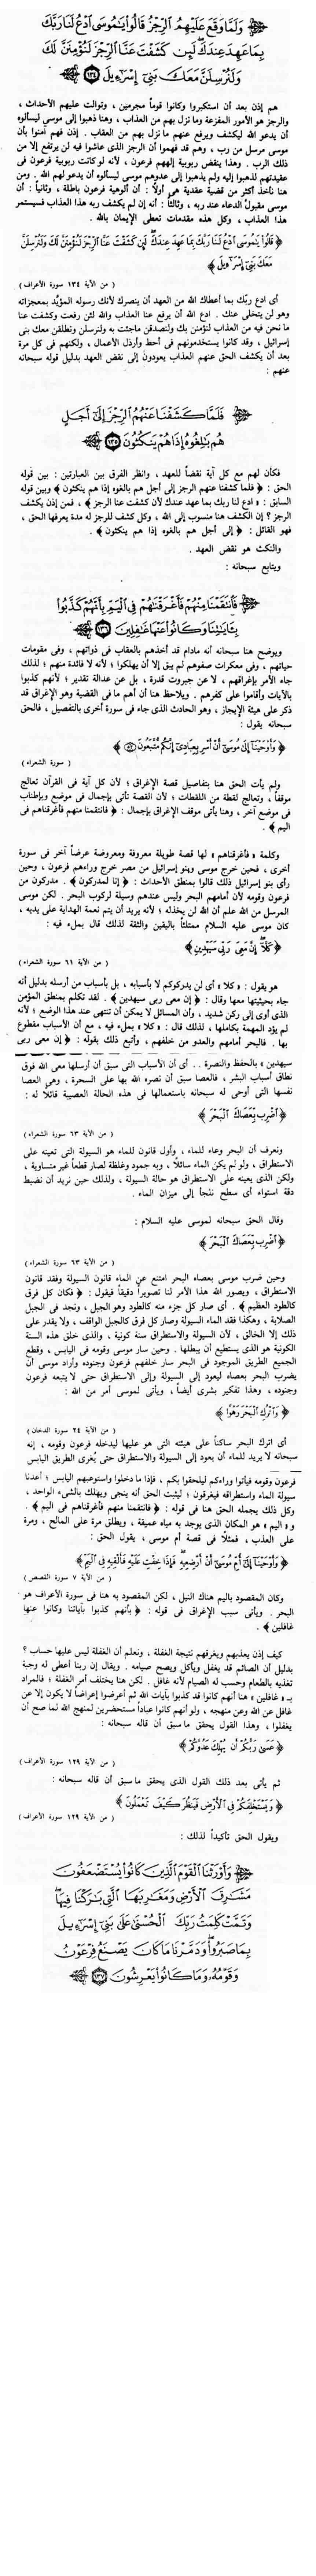 وَلَمَّا وَقَعَ عَلَيْهِمُ الرِّجْزُ قَالُوا يَٰمُوسَى ادْعُ لَنَا رَبَّكَ
بِمَا عَهِدَ عِندَكَ لَئِن كَشَفْتَ عَنَّا الرِّجْزَ لَنُؤْمِنَنَّ لَكَ
وَلَنُرْسِلَنَّ مَعَكَ بَنِي إِسْرَٰٓءِيلَ ١٣٤
هم إذن بعد أن استكبروا وكانوا قوماً مجرمين ، وتوالت عليهم الأحداث ،
والرجز هو الأمور المفزعة وما نزل بهم من العذاب ، وهنا ذهبوا إلى موسى ليسألوه
أن يدعو الله ليكشف ويرفع عنهم ما نزل بهم من العقاب . إذن فهم آمنوا بأن
موسى مرسل من رب ، وهم قد فهموا أن الرجز الذى عاشوا فيه لن يرتفع إلا من
ذلك الرب . وهذا ينقض ربوبية إلههم فرعون ، لأنه لو كانت ربوبية فرعون فى
عقيدتهم لذهبوا إليه ولم يذهبوا إلى عدوهم موسى ليسألوه أن يدعو لهم الله . ومن
هنا نأخذ أكثر من قضية عقدية هى أولاً : أن ألوهية فرعون باطلة ، وثانياً : أن
موسى مقبول الدعاء عند ربه ، وثالثاً : أنه إن لم يكشف ربه هذا العذاب فسيستمر
هذا العذاب ، وكل هذه مقدمات تعطى الإيمان بالله .
﴿ قَالُوا يَٰمُوسَى ادْعُ لَنَا رَبَّكَ بِمَا عَهِدَ عِندَكَ لَئِن كَشَفْتَ عَنَّا الرِّجْزَ لَنُؤْمِنَنَّ لَكَ وَلَنُرْسِلَنَّ
مَعَكَ بَنِي إِسْرَٰٓءِيلَ ﴾
( من الآية ١٣٤ سورة الأعراف )
أى ادع ربك بما أعطاك الله من العهد أن ينصرك لأنك رسوله المؤيَّد بمعجزاته
وهو لن يتخلى عنك . ادع الله أن يرفع عنا العذاب والله لئن رفعت وكشفت عنا
ما نحن فيه من العذاب لنؤمنن بك ولنصدقن ماجئت به ولنرسلن ونطلقن معك بنى
إسرائيل ، وقد كانوا يستخدمونهم فى أحط وأرذل الأعمال ، ولكنهم فى كل مرة
بعد أن يكشف الحق عنهم العذاب يعودون إلى نقض العهد بدليل قوله سبحانه
عنهم :
فَلَمَّا كَشَفْنَا عَنْهُمُ الرِّجْزَ إِلَىٰٓ أَجَلٍ
هُم بَٰلِغُوهُ إِذَا هُمْ يَنكُثُونَ ١٣٥
فكأن لهم مع كل آية نقضاً للعهد ، وانظر الفرق بين العبارتين : بين قوله
الحق : ﴿ فلما كشفنا عنهم الرجز إلى أجل هم بالغوه إذا هم ينكثون ﴾ وبين قوله
السابق : « ادع لنا ربك بما عهد عندك لأن كشفت عنا الرجز ﴾ ، فمن إذن يكشف
الرجز ؟ إن الكشف هنا منسوب إلى الله ، وكل كشف للرجز له مدة يعرفها الحق ،
فهو القائل : ﴿ إلى أجل هم بالغوه إذا هم ينكثون ﴾ .
والنكث هو نقض العهد .
ويتابع سبحانه :
فَانتَقَمْنَا مِنْهُمْ فَأَغْرَقْنَٰهُمْ فِي الْيَمِّ بِأَنَّهُمْ كَذَّبُوا
بِـَٔايَٰتِنَا وَكَانُوا عَنْهَا غَٰفِلِينَ ١٣٦
ويوضح هنا سبحانه أنه مادام قد أخذهم بالعقاب فى ذواتهم ، وفى مقومات
حياتهم ، وفى معكرات صفوهم لم يبق إلا أن يهلكوا ؛ لأنه لا فائدة منهم ؛ لذلك
جاء الأمر بإغراقهم ، لا عن جبروت قدرة ، بل عن عدالة تقدير ؛ لأنهم كذبوا
بالآيات وأقاموا على كفرهم . ويلاحظ هنا أن أهم ما فى القضية وهو الإغراق قد
ذكر على هيئة الإيجاز ، وهو الحادث الذى جاء فى سورة أخرى بالتفصيل ، فالحق
سبحانه يقول :
﴿ وَأَوْحَيْنَآ إِلَىٰ مُوسَىٰٓ أَنْ أَسْرِ بِعِبَادِيٓ إِنَّكُم مُّتَّبَعُونَ ٥٢ ﴾
( سورة الشعراء )
ولم يأت الحق هنا بتفاصيل قصة الإغراق ؛ لأن كل آية فى القرآن تعالج
موقفاً ، وتعالج لقطة من اللقطات ؛ لأن القصة تأتى بإجمال فى موضع وبإطناب
فى موضع آخر ، وهنا يأتى موقف الإغراق بإجمال : ﴿ فانتقمنا منهم فأغرقناهم فى
اليم ﴾ .
وكلمة « فأغرقناهم » لها قصة طويلة معروفة ومعروضة عرضاً آخر فى سورة
أخرى ، فحين خرج موسى وبنو إسرائيل من مصر خرج وراءهم فرعون ، وحين
رأى بنو إسرائيل ذلك قالوا بمنطق الأحداث : ﴿ إنا لمدركون ﴾ . مدركون من
فرعون وقومه لأن أمامهم البحر وليس عندهم وسيلة لركوب البحر . لكن موسى
المرسل من الله علم أن الله لن يخذله ؛ لأنه يريد أن يتم نعمة الهداية على يديه ،
كان موسى عليه السلام ممتلئاً باليقين والثقة لذلك قال بملء فيه :
﴿ كَلَّآ إِنَّ مَعِيَ رَبِّي سَيَهْدِينِ ﴾
( من الآية ٦١ سورة الشعراء )
هو يقول : « كلا » أى لن يدركوكم لا بأسبابه ، بل بأسباب من أرسله بدليل أنه
جاء بحيثيتها معها وقال : ﴿ إن معى ربى سيهدين ﴾ . لقد تكلم بمنطق المؤمن
الذى أوى إلى ركن شديد ، وأن المسائل لا يمكن أن تنتهى عند هذا الوضع ؛ لأنه
لم يؤد المهمة بكاملها ، لذلك قال : « كلا » بملء فيه ، مع أن الأسباب مقطوع
بها . فالبحر أمامهم والعدو من خلفهم ، وأتبع ذلك بقوله : ﴿ إن معى ربى
سيهدين » بالحفظ والنصرة .. أى أن الأسباب التى سبق أن أرسلها معى الله فوق
نطاق أسباب البشر ، فالعصا سبق أن نصره الله بها على السحرة ، وهى العصا
نفسها التى أوحى له سبحانه باستعمالها فى هذه الحالة العصيبة قائلاً له :
﴿ اضْرِب بِّعَصَاكَ الْبَحْرَ ﴾
( من الآية ٦٣ سورة الشعراء )
ونعرف أن البحر وعاء للماء ، وأول قانون للماء هو السيولة التى تعينه على
الاستطراق ، ولو لم يكن الماء سائلاً ، وبه جمود وغلظة لصار قطعاً غير متساوية ،
ولكن الذى يعينه على الاستطراق هو حالة السيولة ، ولذلك حين نريد أن نضبط
دقة استواء أى سطح نلجأ إلى ميزان الماء .
وقال الحق سبحانه لموسى عليه السلام :
﴿ اضْرِب بِّعَصَاكَ الْبَحْرَ ﴾
( من الآية ٦٣ سورة الشعراء )
وحين ضرب موسى بعصاه البحر امتنع عن الماء قانون السيولة وفقد قانون
الاستطراق ، ويصور الله هذا الأمر لنا تصويراً دقيقاً فيقول : ﴿ فكان كل فرق
كالطود العظيم ﴾ . أى صار كل جزء منه كالطود وهو الجبل ، ونجد فى الجبل
الصلابة ، وهكذا فقد الماء السيولة وصار كل فرق كالجبل الواقف ، ولا يقدر على
ذلك إلا الخالق ، لأن السيولة والاستطراق سنة كونية ، والذى خلق هذه السنة
الكونية هو الذى يستطيع أن يبطلها . وحين سار موسى وقومه فى اليابس ، وقطع
الجميع الطريق الموجود فى البحر سار خلفهم فرعون وجنوده وأراد موسى أن
يضرب البحر بعصاه ليعود إلى السيولة وإلى الاستطراق حتى لا يتبعه فرعون
وجنوده ، وهذا تفكير بشرى أيضاً ، ويأتى لموسى أمر من الله :
﴿ وَاتْرُكِ الْبَحْرَ رَهْوًا ﴾
( من الآية ٢٤ سورة الدخان )
أى اترك البحر ساكناً على هيئته التى هو عليها ليدخله فرعون وقومه ، إنه
سبحانه لا يريد للماء أن يعود إلى السيولة والاستطراق حتى يُغرى الطريق اليابس
فرعون وقومه فيأتوا وراءكم ليلحقوا بكم ، فإذا ما دخلوا واستوعبهم اليابس ؛ أعدنا
سيولة الماء واستطراقه فيغرقون ؛ ليثبت الحق أنه ينجى ويهلك بالشىء الواحد ،
وكل ذلك يجمله الحق هنا فى قوله : ﴿ فانتقمنا منهم فأغرقناهم فى اليم ﴾ .
و « اليم » هو المكان الذى يوجد به مياه عميقة ، ويطلق مرة على المالح ، ومرة
على العذب ، فمثلاً فى قصة أم موسى ، يقول الحق :
﴿ وَأَوْحَيْنَآ إِلَىٰٓ أُمِّ مُوسَىٰٓ أَنْ أَرْضِعِيهِ فَإِذَا خِفْتِ عَلَيْهِ فَأَلْقِيهِ فِي الْيَمِّ ﴾
( من الآية ٧ سورة القصص )
وكان المقصود باليم هناك النيل ، لكن المقصود به هنا فى سورة الأعراف هو
البحر . ويأتى سبب الإغراق فى قوله : ﴿ بأنهم كذبوا بآياتنا وكانوا عنها
غافلين ﴾ .
كيف إذن يعذبهم ويغرقهم نتيجة الغفلة ، ونعلم أن الغفلة ليس عليها حساب ؟
بدليل أن الصائم قد يغفل ويأكل ويصح صيامه . ويقال إن ربنا أعطى له وجبة
تغذيه بالطعام وحسب له الصيام لأنه غافل . لكن هنا يختلف أمر الغفلة ؛ فالمراد
بـ « غافلين » هنا أنهم كانوا قد كذبوا بآيات الله ثم أعرضوا إعراضاً لا يكون إلا عن
غافل عن الله وعن منهجه ، ولو أنهم كانوا عباداً مستحضرين لمنهج الله لما صح أن
يغفلوا ، وهذا القول يحقق ما سبق أن قاله سبحانه :
﴿ عَسَىٰ رَبُّكُمْ أَن يُهْلِكَ عَدُوَّكُمْ ﴾
( من الآية ١٢٩ سورة الأعراف )
ثم يأتى بعد ذلك القول الذى يحقق ما سبق أن قاله سبحانه :
﴿ وَيَسْتَخْلِفَكُمْ فِي الْأَرْضِ فَيَنظُرَ كَيْفَ تَعْمَلُونَ ﴾
( من الآية ١٢٩ سورة الأعراف )
ويقول الحق تأكيداً لذلك :
وَأَوْرَثْنَا الْقَوْمَ الَّذِينَ كَانُوا يُسْتَضْعَفُونَ
مَشَٰرِقَ الْأَرْضِ وَمَغَٰرِبَهَا الَّتِي بَٰرَكْنَا فِيهَا
وَتَمَّتْ كَلِمَتُ رَبِّكَ الْحُسْنَىٰ عَلَىٰ بَنِيٓ إِسْرَٰٓءِيلَ
بِمَا صَبَرُوا وَدَمَّرْنَا مَا كَانَ يَصْنَعُ فِرْعَوْنُ
وَقَوْمُهُۥ وَمَا كَانُوا يَعْرِشُونَ ١٣٧